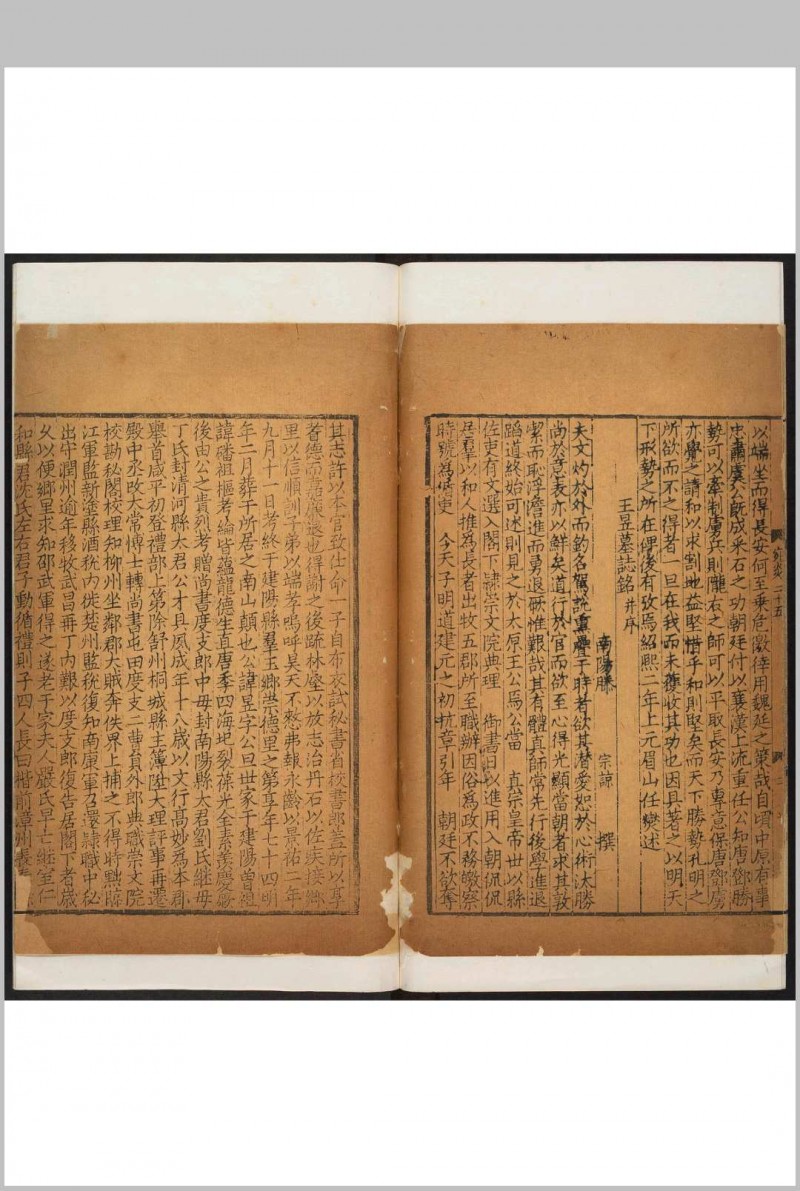 以端坐而得長安何至乗危徼倖用魏延之策哉自頃中原有事
忠肅虞公旣成采石之功朝廷付以襄漢上流重任公知唐鄧勝
勢可以牽制虜兵則隴右之師可以平取長安乃專意保唐鄧虜
亦覺之請和以求割地益堅惜乎和則堅矣而天下勝勢孔明之
所欲而不之得者一旦在我而未獲收其功也因具著之以明天
下形勢之所在俾後有攷焉紹熙二年上元眉山任爕述
王昱墓誌銘 并序
南陽滕 宗諒 撰
夫文灼於外而釣名駕說重譽于時者欲其潜愛恕於心術汰勝
尚於意表亦以鮮矣道行於官而欲至心得光顯當朝者求其敦
潔而恥浮謄進而勇退厥惟艱哉其有體真師常先行後學進退
蹈道終始可述則見之於太原王公焉公當 真宗皇帝世以縣
佐吏有文選入閣下隷崇文院典理 御書日以進用入朝侃侃
居羣以和人推為長者出牧五郡所至職辦因俗為政不務皦察
時號為循吏 今天子明道建元之初抗章引年 朝廷不欲奪
其志許以本官致仕命一子自布衣試秘書省校書郎盖所以尊
耆德而嘉廉退也得謝之後疏林壑以放志治丹石以佐疾接鄉
里以信順訓子弟以端孝嗚呼昊天不憖弗報永齡以景祐二年
九月十一日考終于建陽縣羣玉鄉崇德里之第享年七十四明
年二月葬于所居之南山顛也公諱昱字公旦世家于建陽曾祖
諱磻祖樞考綸皆藴龍德生直唐季四海圮裂葆光全素業慶嗇
後由公之貴烈考贈尚書度支郎中毋封南陽縣太君劉氏継毋
丁氏封清河縣太君公才具夙成年十八歲以文行髙妙為本郡
舉首咸平初登禮部上第除舒州桐城縣主簿陞大理評事再遷
殿中丞改太常博士轉尚書屯田度支二曹員外郎典職崇文院
校勘秘閣校理知柳州坐鄰郡大賊奔佚界上捕之不得時黜臨
江軍監新塗縣酒稅內徙楚州監稅復知南康軍乃還隷職中秘
出守潤州逾年移牧武昌再丁内艱以度支郎復告居閣下者歲
乆以便鄉里求知邵武軍得之遂老于家夫人嚴氏早亡継室仁
和縣君沈氏左右君子動循禮則子四人長曰楷前漳州